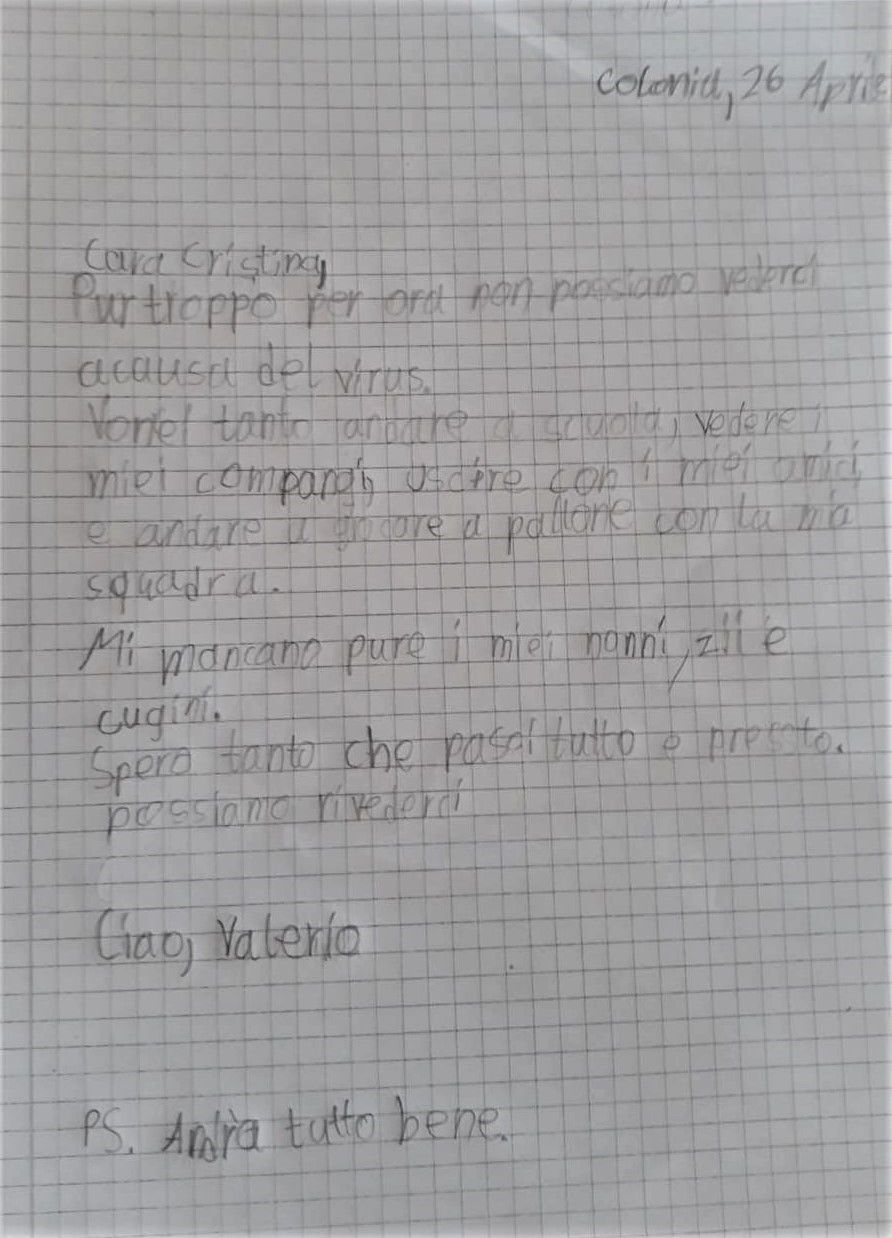 Colonia, 26 Aprile
Cara Cristina,
Purtroppo per ora non possiamo vederci
acausa del virus.
Vorrei tanto andare a scuola, vedere i
miei compangi, uscire con i miei amici
e andare a giocare a pallone con la mia
squadra.
Mi mancano pure i miei nonni, zii e
cugini.
Spero tanto che passi tutto e presto.
possiamo rivederci
Ciao, Valerio
PS. Andrà tutto bene.